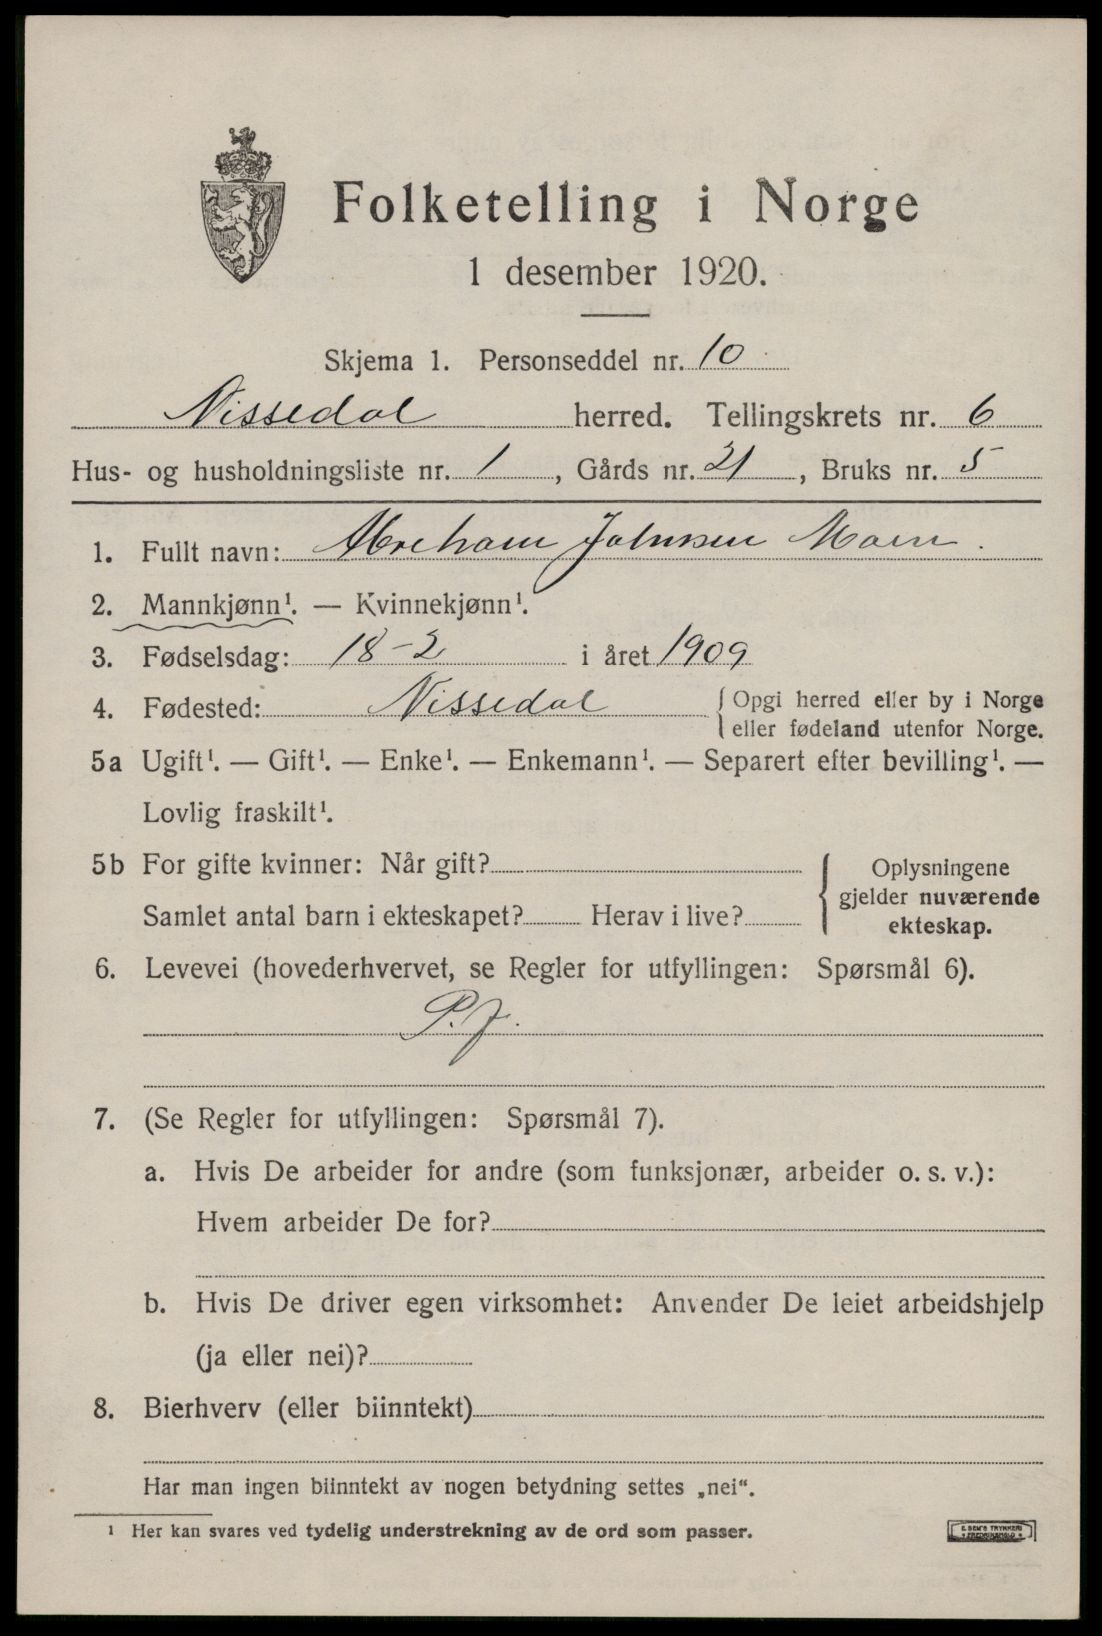 Folketelling i Norge
1 desember 1920.
Skjema 1. Personseddel nr. 10
Nissedal herred. Tellingskrets nr. 6
Hus- og husholdningsliste nr. 1, Gårds nr. 21, Bruks nr. 5
1. Fullt navn: Abreham Johnsen Moen.
2. Mannkjønn¹. — Kvinnekjønn¹.
3. Fødselsdag: 18-2 i året 1909
4. Fødested: Nissedal { Opgi herred eller by i Norge
eller fødeland utenfor Norge.
5a Ugift¹. — Gift¹. — Enke¹. — Enkemann¹. — Separert efter bevilling¹. —
Lovlig fraskilt¹.
5b For gifte kvinner: Når gift?
Samlet antal barn i ekteskapet? Herav i live?
{ Oplysningene
gjelder nuværende
ekteskap.
6. Levevei (hovederhvervet, se Regler for utfyllingen: Spørsmål 6).
P.J.
7. (Se Regler for utfyllingen: Spørsmål 7).
a. Hvis De arbeider for andre (som funksjonær, arbeider o. s. v.):
Hvem arbeider De for?
b. Hvis De driver egen virksomhet: Anvender De leiet arbeidshjelp
(ja eller nei)?
8. Bierhverv (eller biinntekt)
Har man ingen biinntekt av nogen betydning settes „nei“.
¹ Her kan svares ved tydelig understrekning av de ord som passer.
E. SEM'S TRYKKERI
FREDRIKSHALD